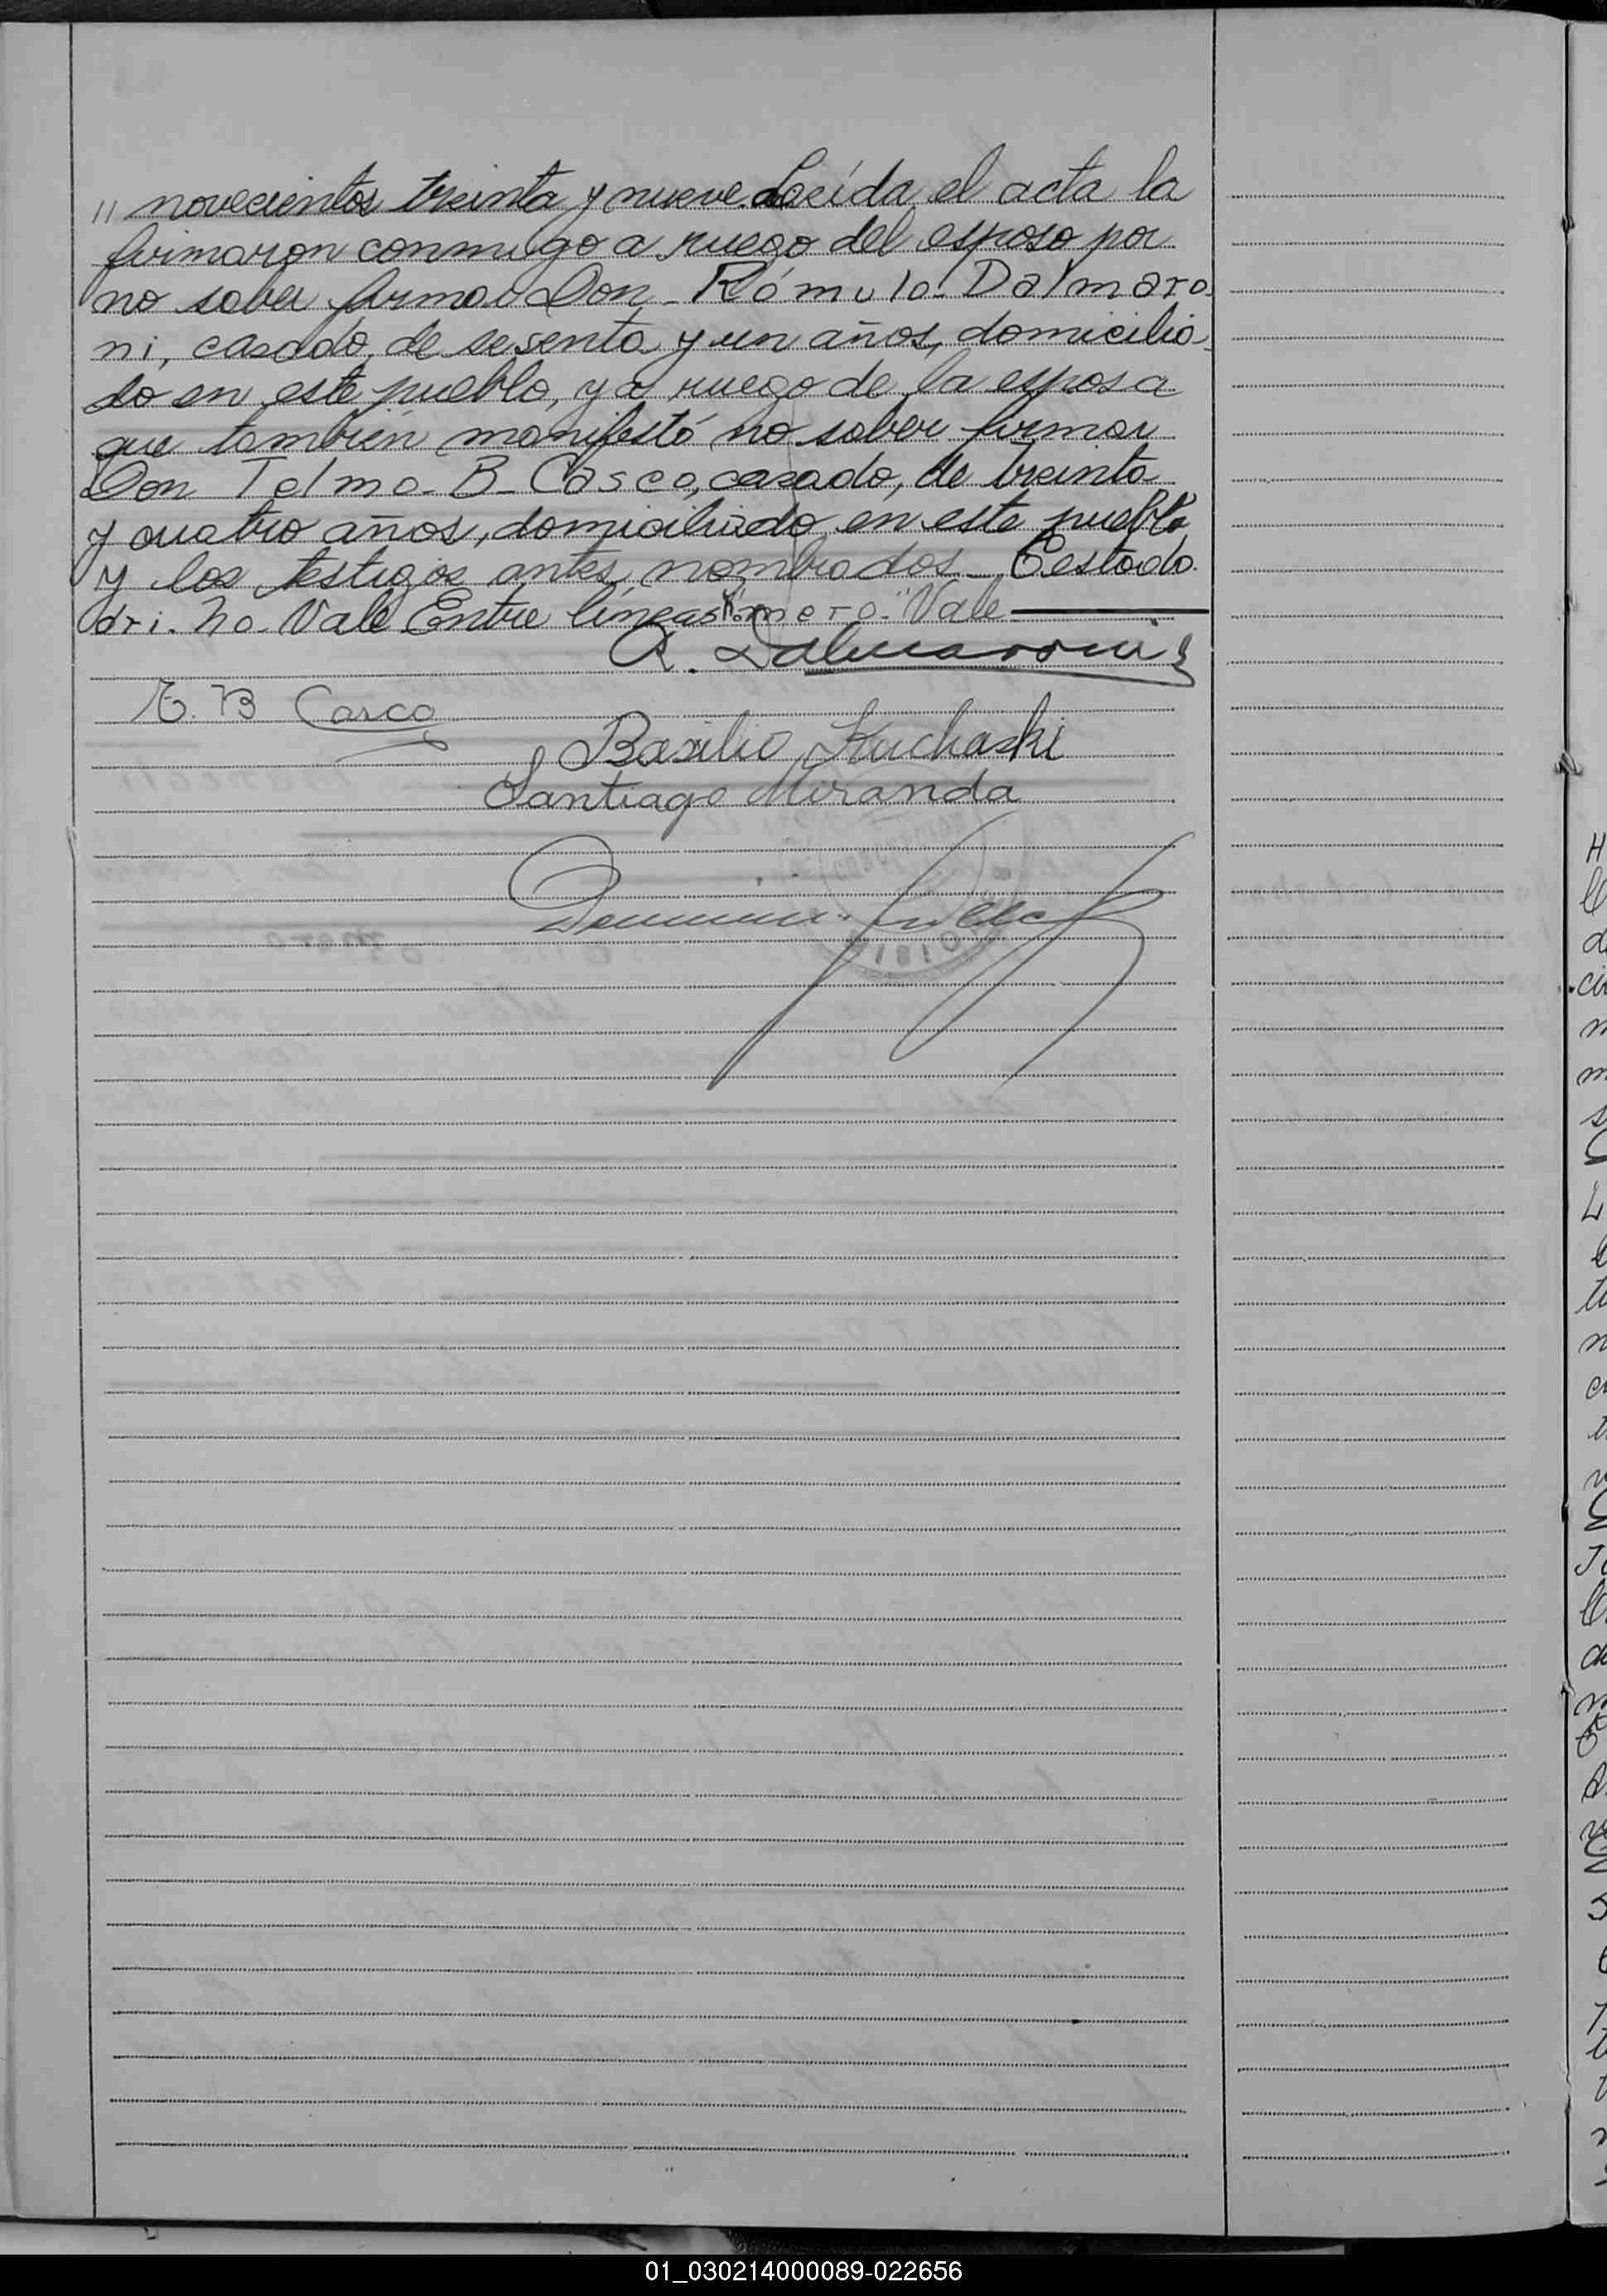 " novecientos treinta y nueve. Leída el acta la
firmaron conmigo a ruego del esposo por
no saber firmar Don Rómulo Dalmaro-
ni, casado, de sesenta y un años, domicilia-
do en este pueblo, y a ruego de la esposa
que también manifestó no saber firmar
Don Telmo B. Casco, casado, de treinta
y cuatro años, domiciliado en este pueblo
y los testigos antes nombrados. Testado
dri. No Vale Entre líneas "mero" Vale
R. Dalmaroni
T. B Casco
Basilio Kuchaski
Santiago Miranda
01_030214000089-022656